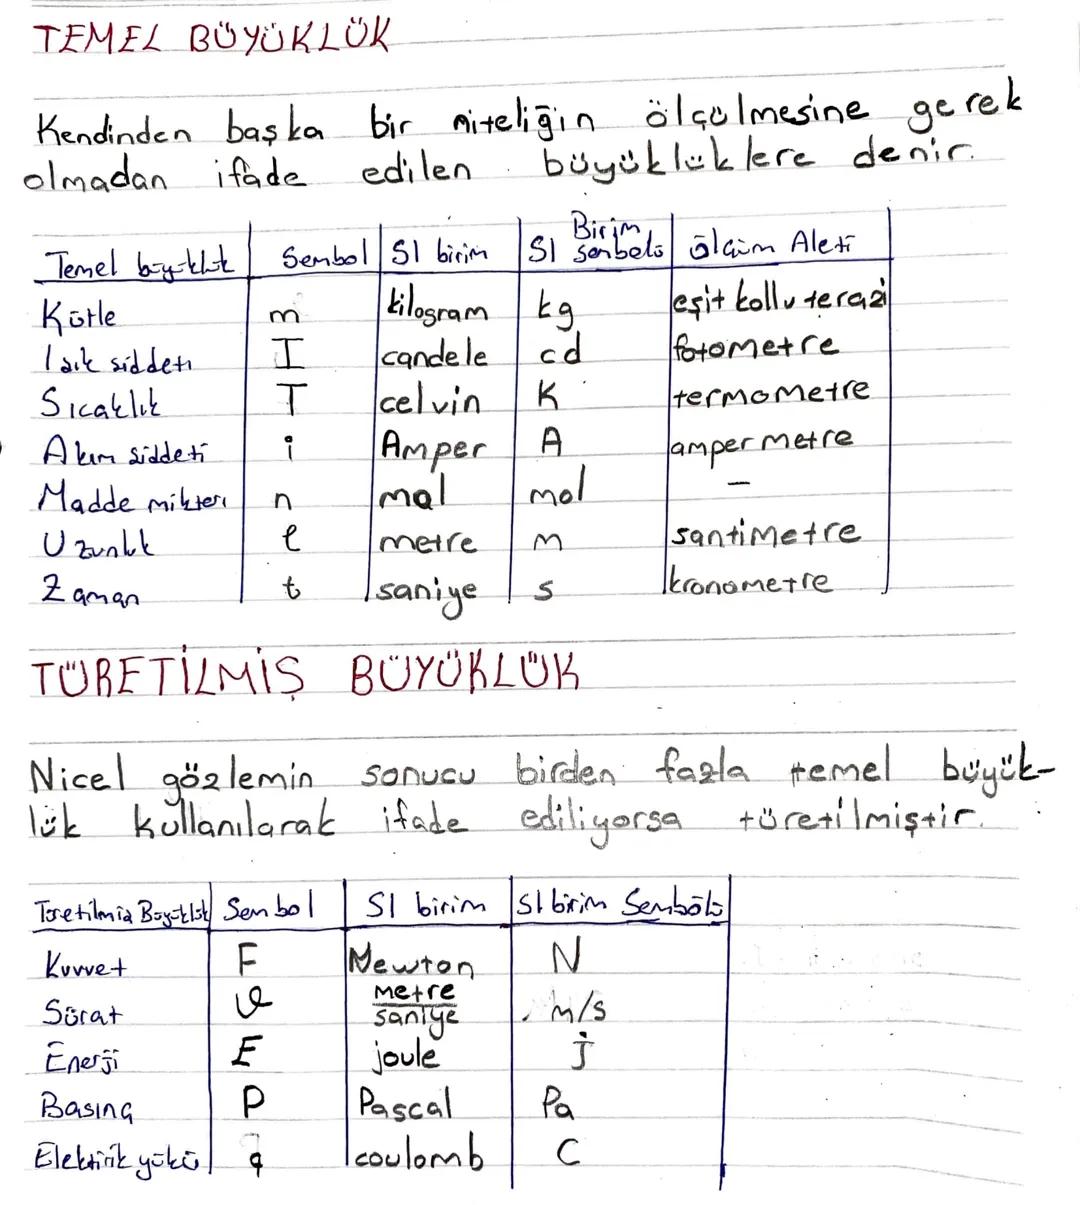 TEMEL BÜYÜKLÜK
Kendinden başka bir niteliğin ölçülmesine gerek
olmadan ifade edilen büyüklüklere denir.
Temel büyüklük Sembol SI birim SI Birim sembolü ölçüm Aleti
Kütle m kilogram kg eşit kollu terazi
Işık şiddeti I candele cd fotometre
Sıcaklık T celvin K termometre
Akım şiddeti i Amper A ampermetre
Madde mikteri n mol mol -
Uzunluk l metre m santimetre
Zaman t saniye s kronometre
TÜRETİLMİŞ BÜYÜKLÜK
Nicel gözlemin sonucu birden fazla temel büyük-
lük kullanılarak ifade ediliyorsa türetilmiştir.
Türetilmiş Büyüklük Sembol SI birim SI birim Sembölü
Kuvvet F Newton N
Sürat v metre/saniye m/s
Enerji E joule j
Basınç P Pascal Pa
Elektirik yükü q coulomb C